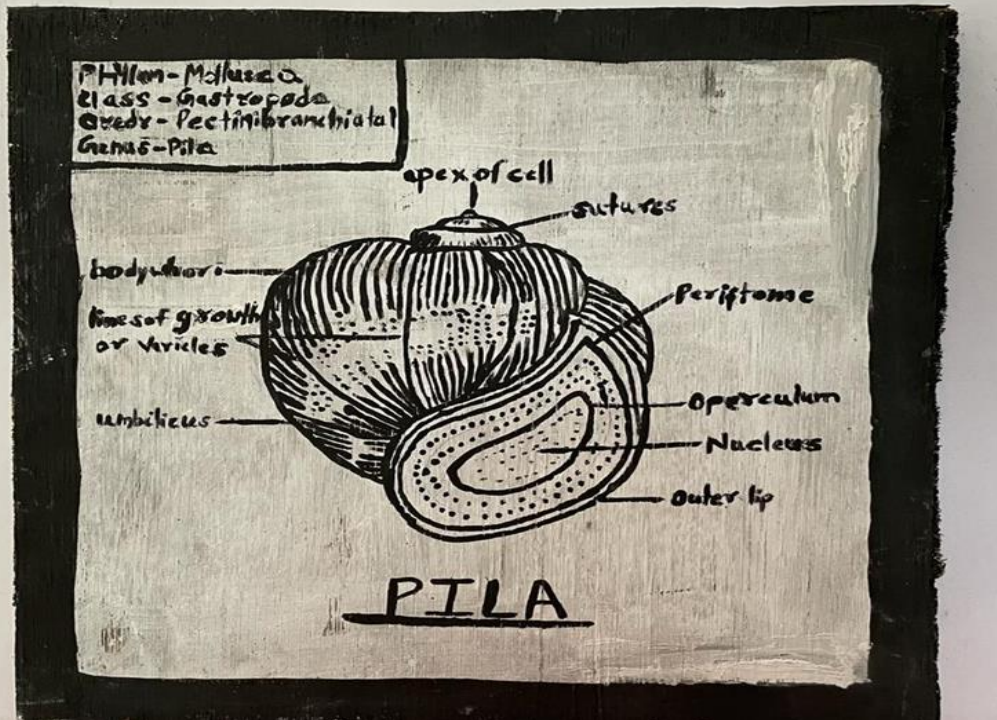 PHllem-Mollusca
class-Gastropoda
Oredr-Pectinibranchiatal
Genus-Pila
apex of cell
sutures
bodywhorl
lines of growth
or vericles
umbilicus
Periftome
Operculum
Nucleus
Outer lip
PILA